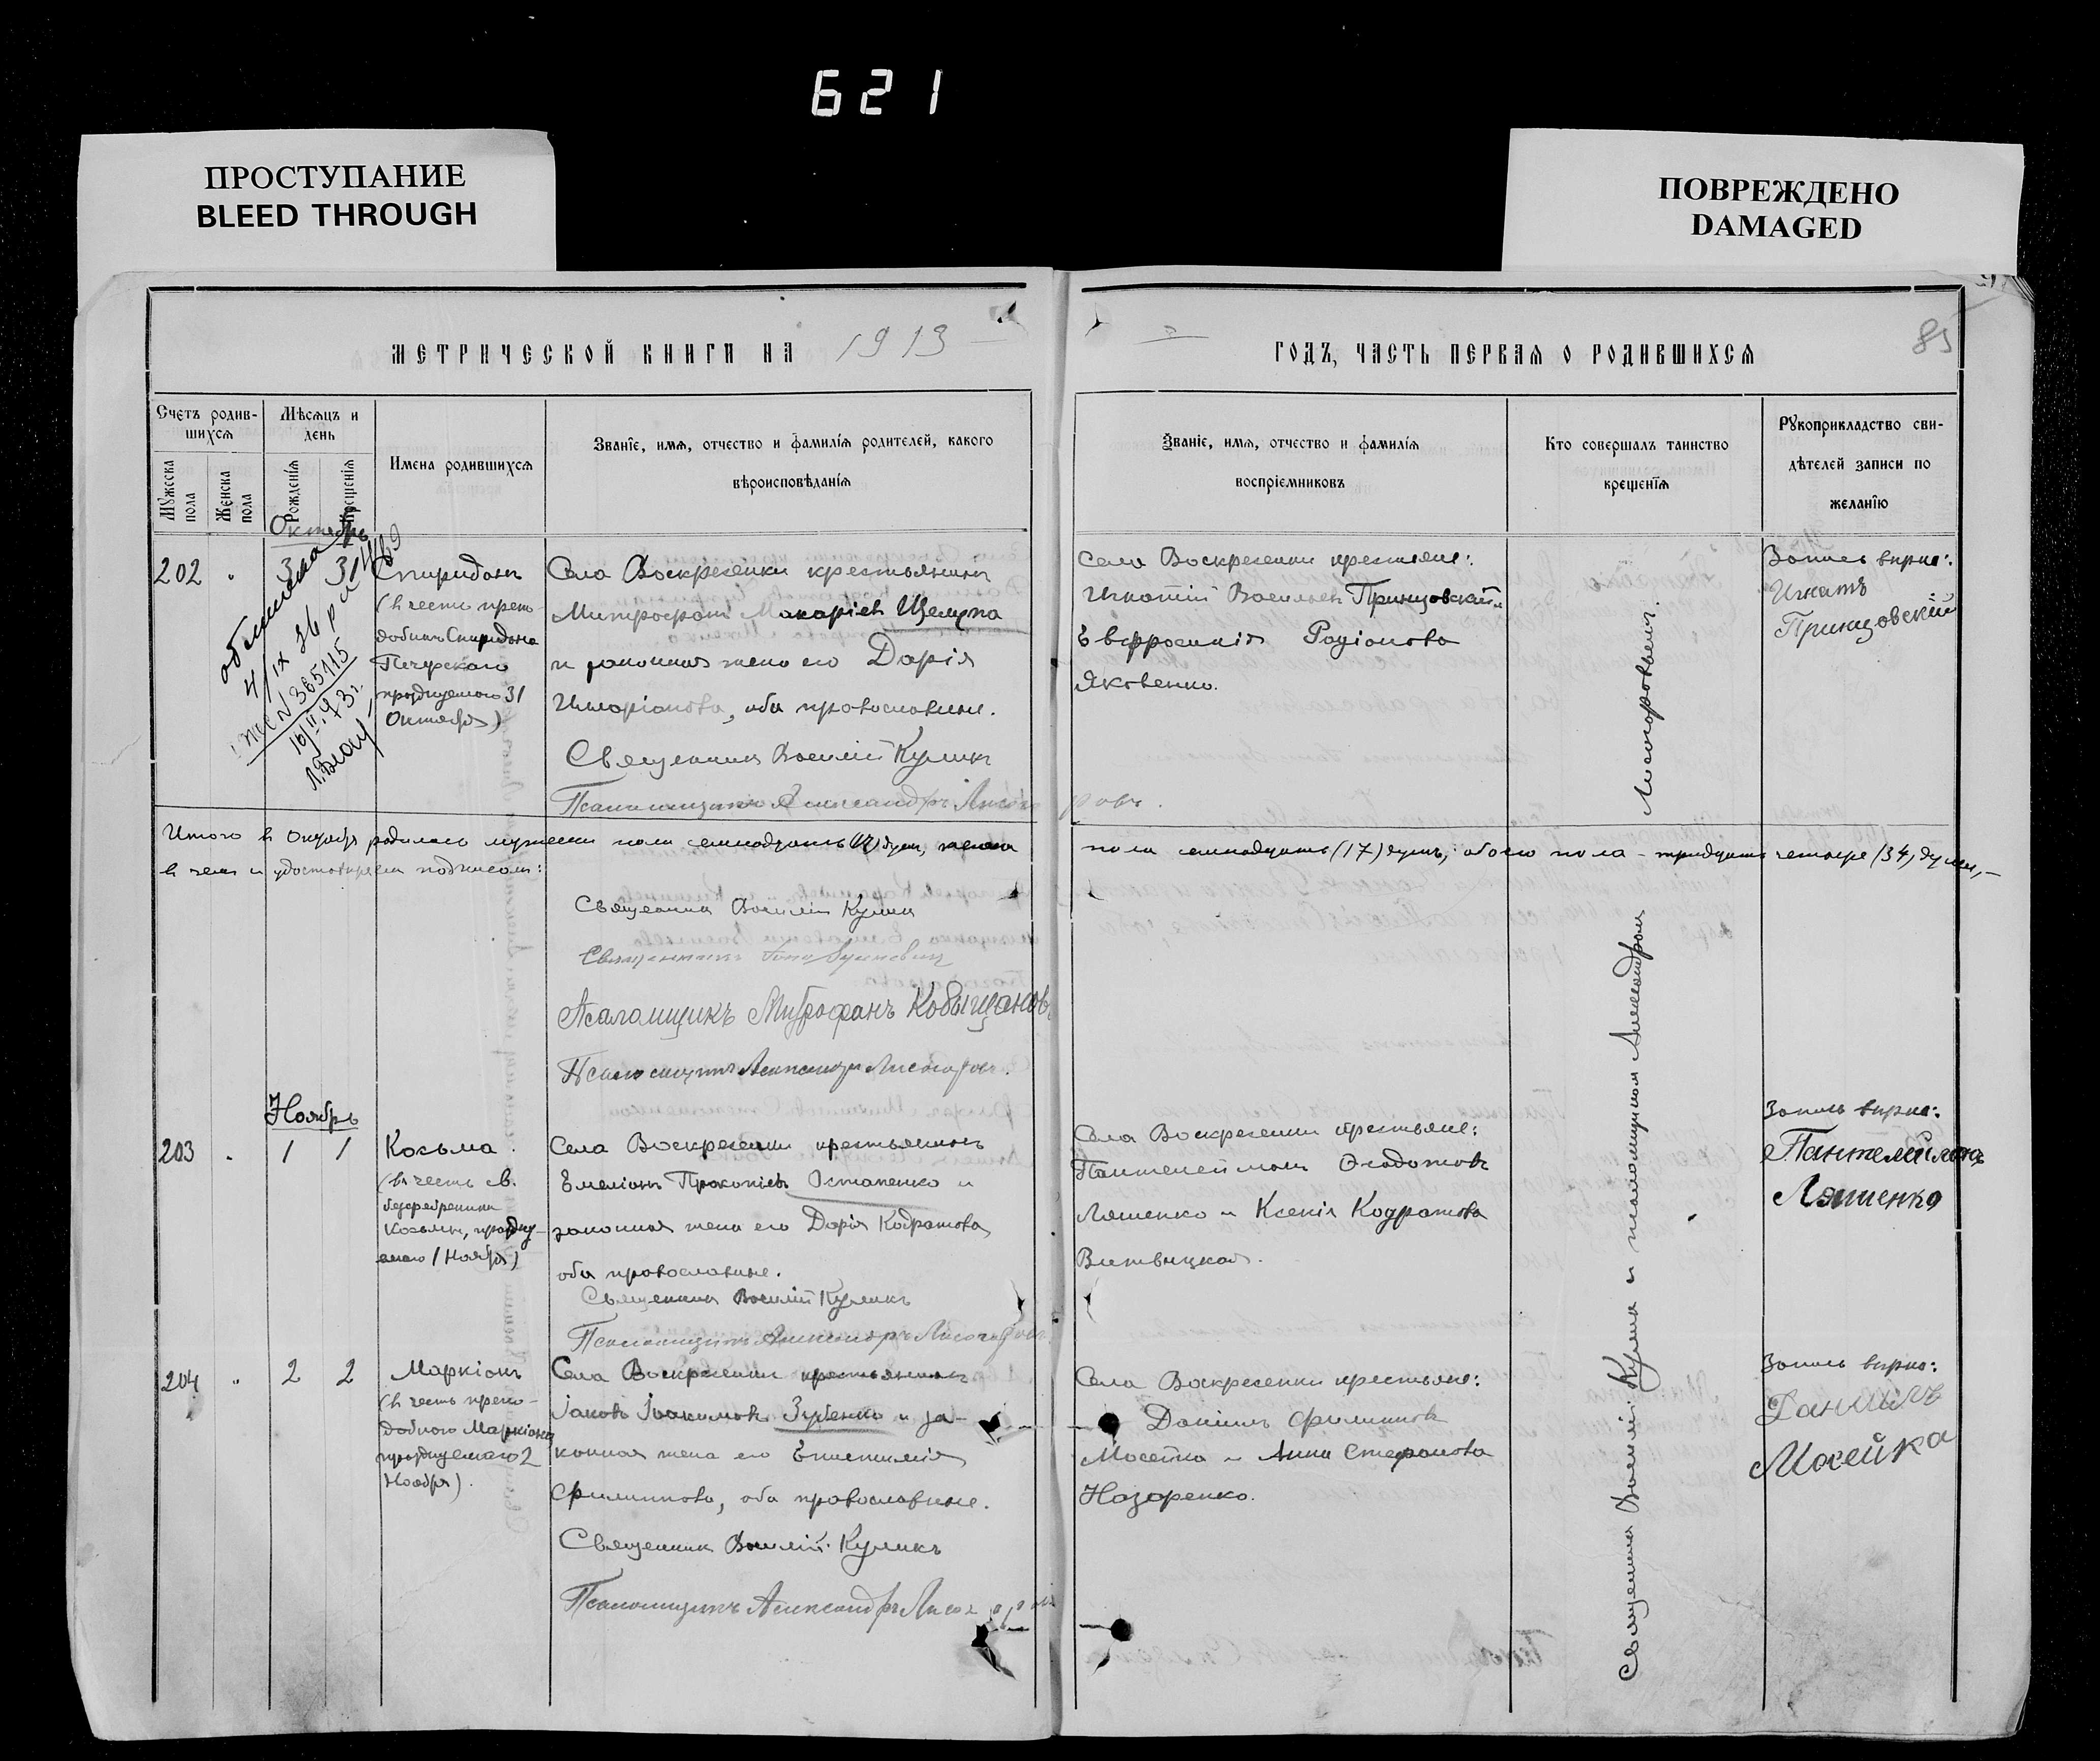 621
ПРОСТУПАНИЕ
BLEED THROUGH
ПОВРЕЖДЕНО
DAMAGED
МЕТРИЧЕСКОЙ КНИГИ НА 1913
ГОДЪ, ЧАСТЬ ПЕРВАЯ О РОДИВШИХСЯ
85
Счетъ родив-
шихся
Мужеска
пола
Женска
пола
Мѣсяцъ и
день
Рожденія
Крещенія
Имена родившихся
Званіе, имя, отчество и фамилія родителей, какого
вѣроисповѣданія
Званіе, имя, отчество и фамилія
воспріемниковъ
Кто совершалъ таинство
крещенія
Рукоприкладство сви-
дѣтелей записи по
желанію
Октябрь
202
31
Спиридонъ
(в честь препо-
добнаго Спиридона
Печерскаго
празднуемаго 31
Октября)
Села Воскресенки крестьянинъ
Митрофанъ Макаріевъ Щелупа
и законная жена его Дарія
Иларіонова, оба православные.
Священникъ Василій Куликъ
Псаломщикъ Александръ Лисогоровъ.
Села Воскресенки крестьяне:
Игнатій Васильевъ Принцовскій и
Евфросинія Родіонова
Яковенко.
Запись вѣрна:
Игнатъ
Принцовскій
№ 365115
16/II.93г.
Итого в Октябрѣ родилось мужеска пола семнадцать (17) душъ, женска пола семнадцать (17) душъ, обоего пола - тридцать четыре (34) души, -
в чемъ и удостовѣряемъ подписомъ:
Священникъ Василій Куликъ
Священникъ
Псаломщикъ Митрофанъ Кобыщановъ
Псаломщикъ Александръ Лисогоровъ.
Ноябрь
203
1 1
Козьма.
(въ честь св.
безсребренника
Козьмы, праздну-
емаго 1 Ноября)
Села Воскресенки крестьянинъ
Емеліанъ Прокопіевъ Остапенко и
законная жена его Дарія Кодратова
оба православные.
Священникъ Василій Куликъ
Псаломщикъ Александръ Лисогоровъ
Села Воскресенки крестьяне:
Пантелеймонъ Ѳеодотовъ
Ляшенко и Ксенія Кодратова
Витвицкая.
Запись вѣрна:
Пантелеймонъ
Ляшенко
204
2 2
Маркіанъ
(в честь препо-
добнаго Маркіана
празднуемаго 2
Ноября).
Села Воскресенки крестьянинъ
Іаковъ Іоакимовъ Зубенко и за-
конная жена его Епистимія
Филиппова, оба православные.
Священникъ Василій Куликъ
Псаломщикъ Александръ Лисогоровъ
Села Воскресенки крестьяне:
Даніилъ Филипповъ
Мосейка и Анна Стефанова
Назаренко.
Запись вѣрна:
Данилъ
Мосейка
Священникъ Василій Куликъ и псаломщикомъ Александромъ Лисогоровымъ.